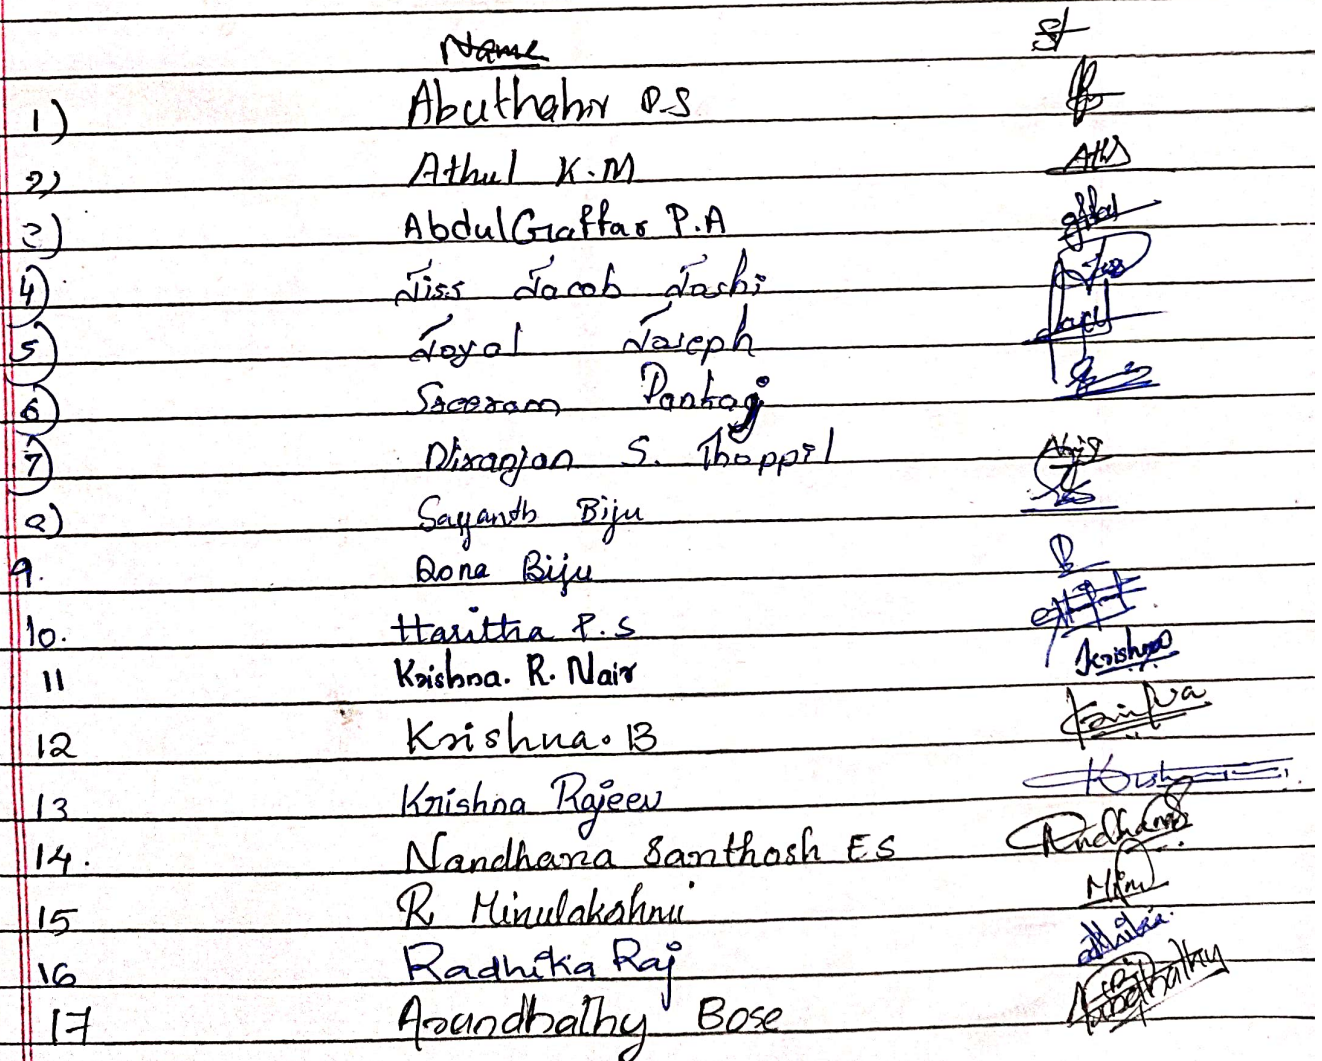 Name
1) Abuthahir P.S
2) Athul K.M Athul
3) Abdul Gaffar P.A
4) Jiss Jacob Joshi
5) Joyal Joseph
6) Sreeram Pankaj
7) Niranjan S. Thoppil
8) Sayanth Biju
9. Dona Biju
10. Haritha P.S
11 Krishna. R. Nair Krishna
12 Krishna. B
13 Krishna Rajeev
14. Nandhana Santhosh E S
15 R Minulakshmi
16 Radhika Raj
17 Arundhathy Bose